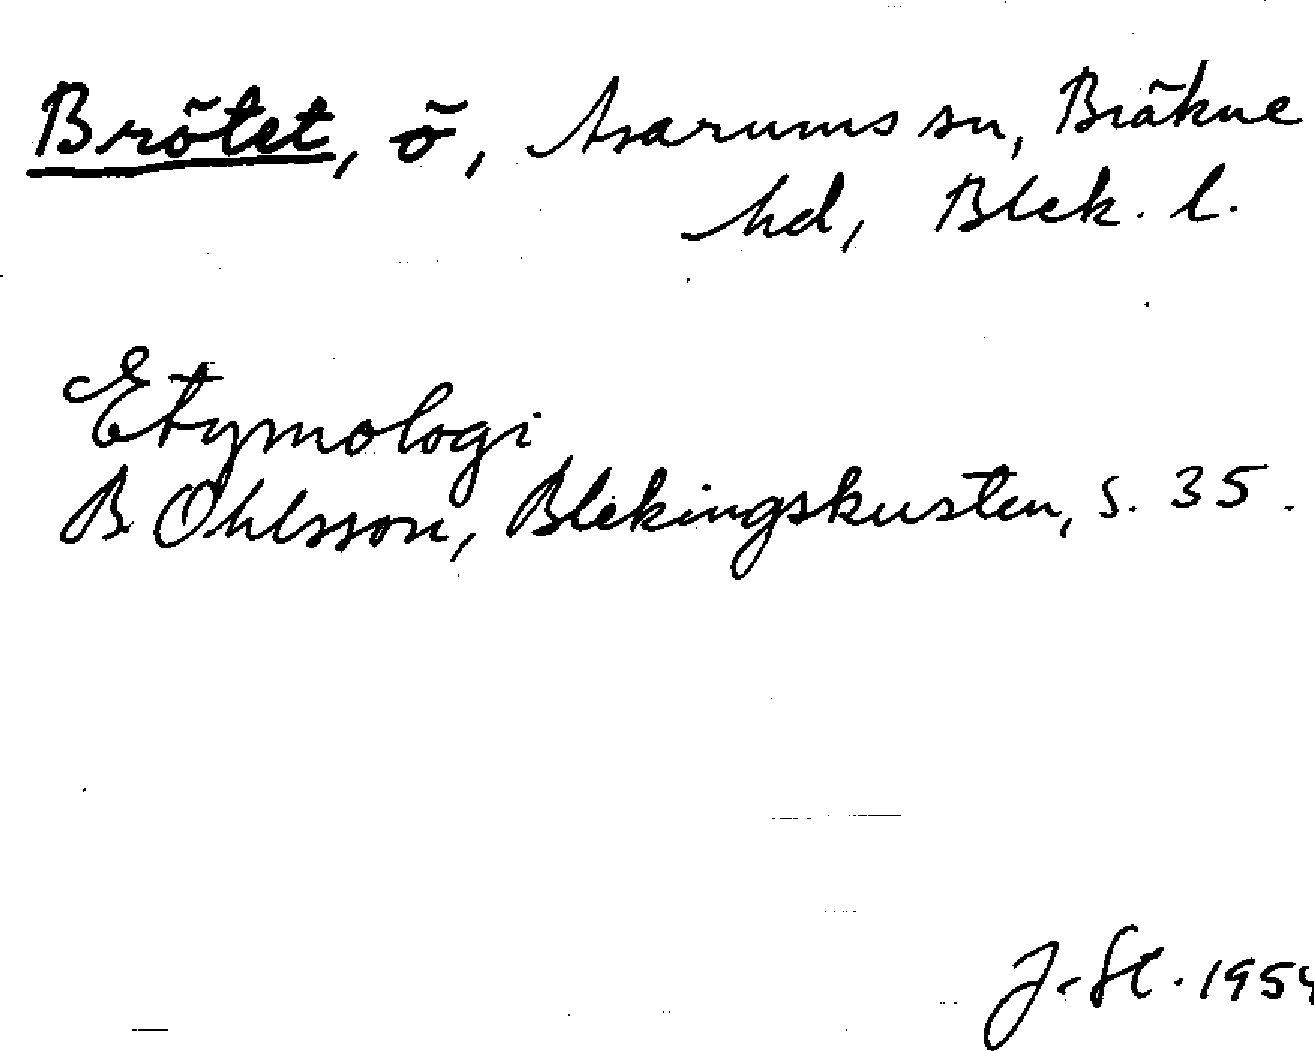 Brötet, ö, Asarums sn, Bräkne
hd, Blek. l.
Etymologi
B. Ohlsson, Blekingskusten, s. 35.
1954